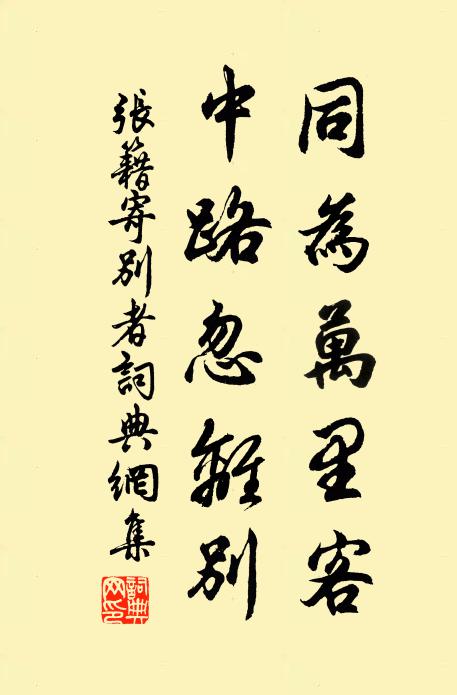 同為萬里客
中路忽離別
張籍寄別者詞典網集
詞典網印